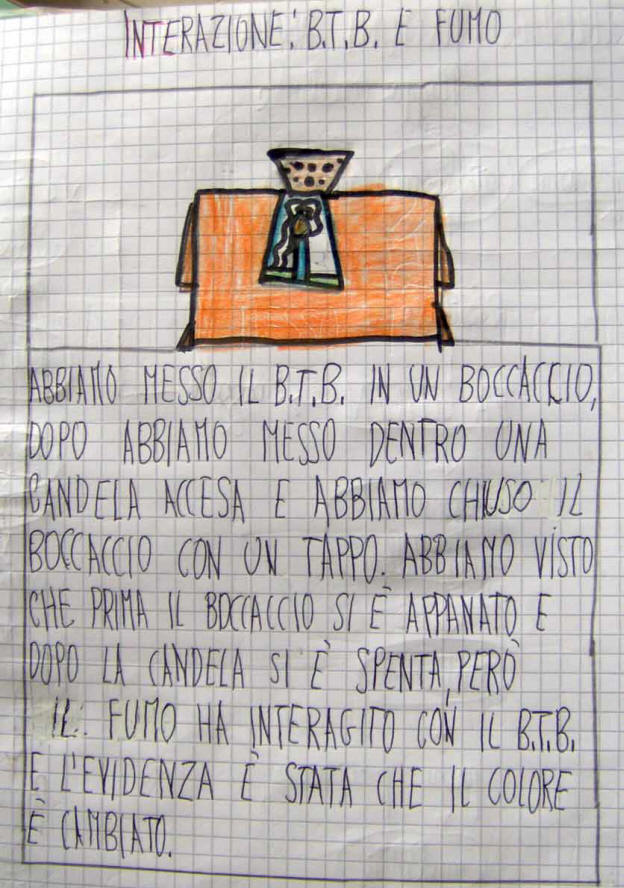 INTERAZIONE: B.T.B. E FUMO
ABBIAMO MESSO IL B.T.B. IN UN BOCCACCIO,
DOPO ABBIAMO MESSO DENTRO UNA
CANDELA ACCESA E ABBIAMO CHIUSO IL
BOCCACCIO CON UN TAPPO. ABBIAMO VISTO
CHE PRIMA IL BOCCACCIO SI È APPANATO E
DOPO LA CANDELA SI È SPENTA, PERÒ
IL FUMO HA INTERAGITO CON IL B.T.B.
E L'EVIDENZA È STATA CHE IL COLORE
È CAMBIATO.